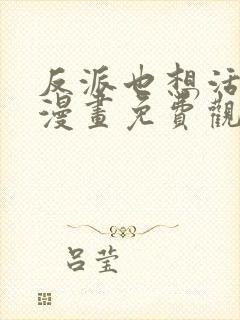 反派也想活
漫畫免費觀
呂莹